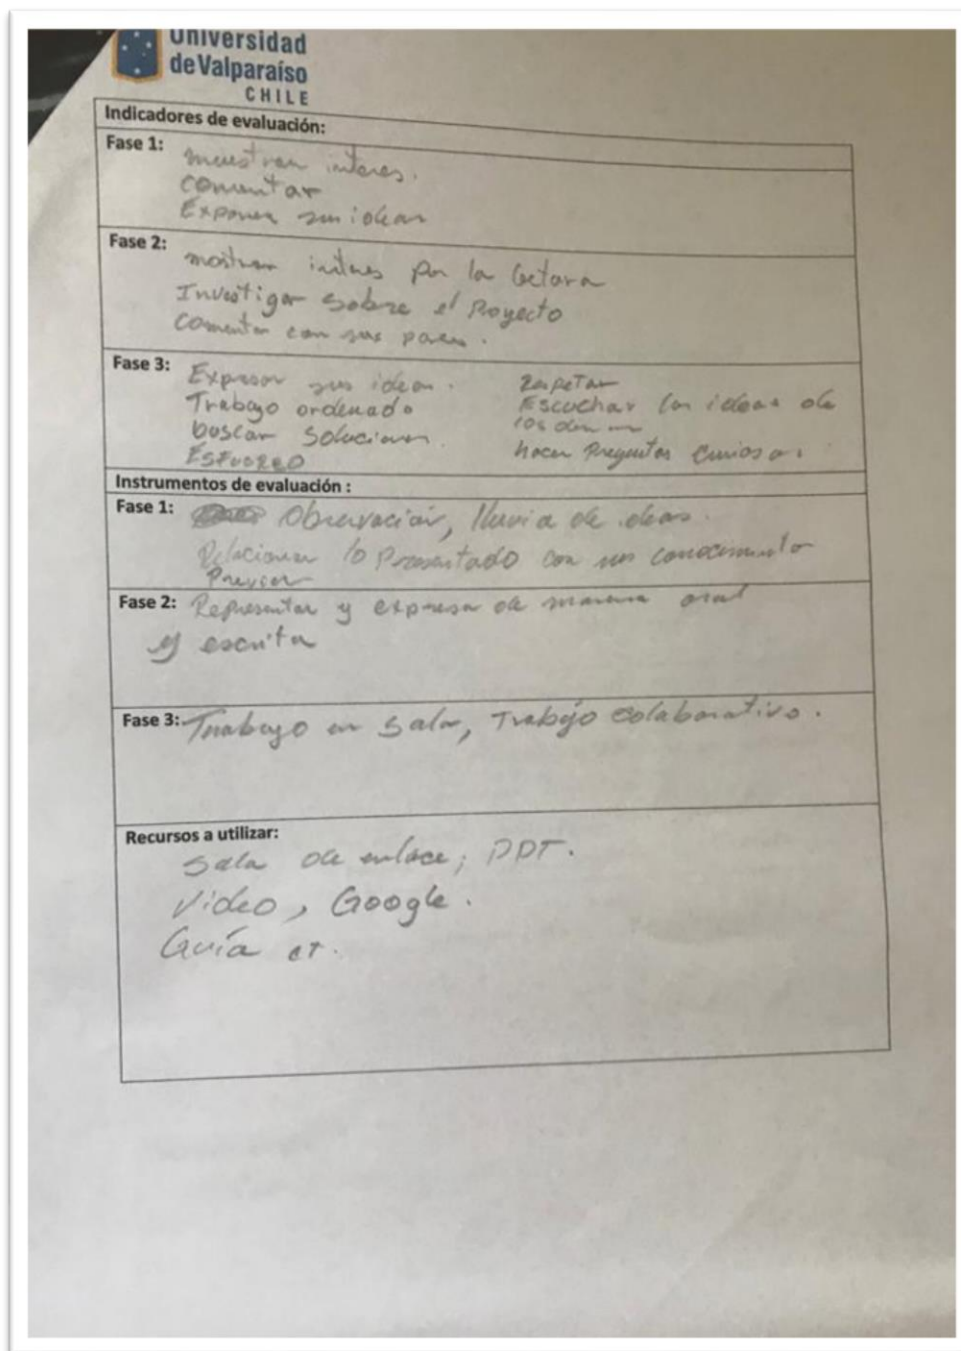 Universidad
de Valparaíso
CHILE
Indicadores de evaluación:
Fase 1:
muestran interes.
comentar
Exponer sus ideas
Fase 2:
mostrar interes por la lectora
Investigar sobre el Proyecto
comentar con sus pares.
Fase 3:
Expresar sus ideas.
Trabajo ordenado
buscar soluciones.
ESFUERZO
Respetar
Escuchar las ideas de
los demas
hacer Preguntas Curiosas.
Instrumentos de evaluación :
Fase 1:
Observación, lluvia de ideas.
Relacionan lo Presentado con sus conocimiento
Previos
Fase 2: Representar y expresa de manera oral
y escrita
Fase 3: Trabajo en Sala, Trabajo colaborativo.
Recursos a utilizar:
Sala de enlace, PPT.
Video, Google.
Guía et.